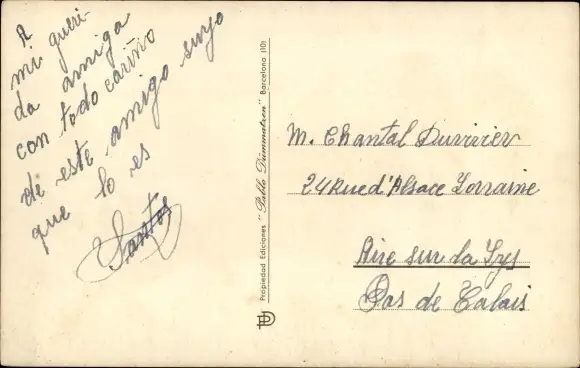 A
mi queri-
da amiga
con todo cariño
de este amigo suyo
que lo es
Santos
Propiedad Ediciones "Pablo Dümmatzen" Barcelona (10)
M. Chantal Duvivier
24 Rue d'Alsace Lorraine
Aire sur la Lys
Pas de Calais